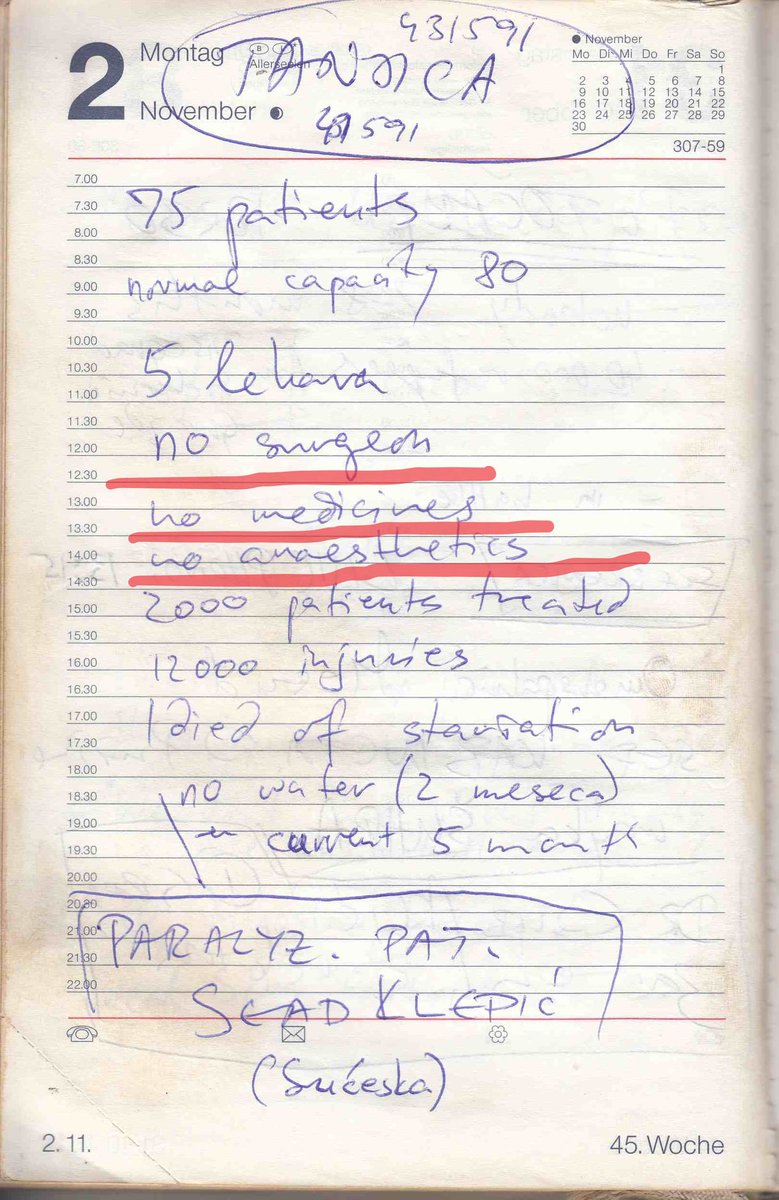 2
Montag B L
Allerseelen
November
431591
TANJICA
431591
November
Mo Di Mi Do Fr Sa So
1
2 3 4 5 6 7 8
9 10 11 12 13 14 15
16 17 18 19 20 21 22
23 24 25 26 27 28 29
30
307-59
7.00
75 patients
7.30
8.00
8.30
normal capacity 80
9.00
9.30
10.00
5 lekara
10.30
11.00
11.30
no surgeon
12.00
12.30
13.00
no medicines
13.30
no anaesthetics
14.00
14.30
2000 patients treated
15.00
15.30
12000 injuries
16.00
16.30
17.00
1 died of starvation
17.30
18.00
no water (2 meseca)
18.30
19.00
current 5 month
19.30
20.00
20.30
21.00
PARALYZ. PAT.
21.30
22.00
SEAD KLEPIĆ
(Sućeska)
2.11.
45. Woche